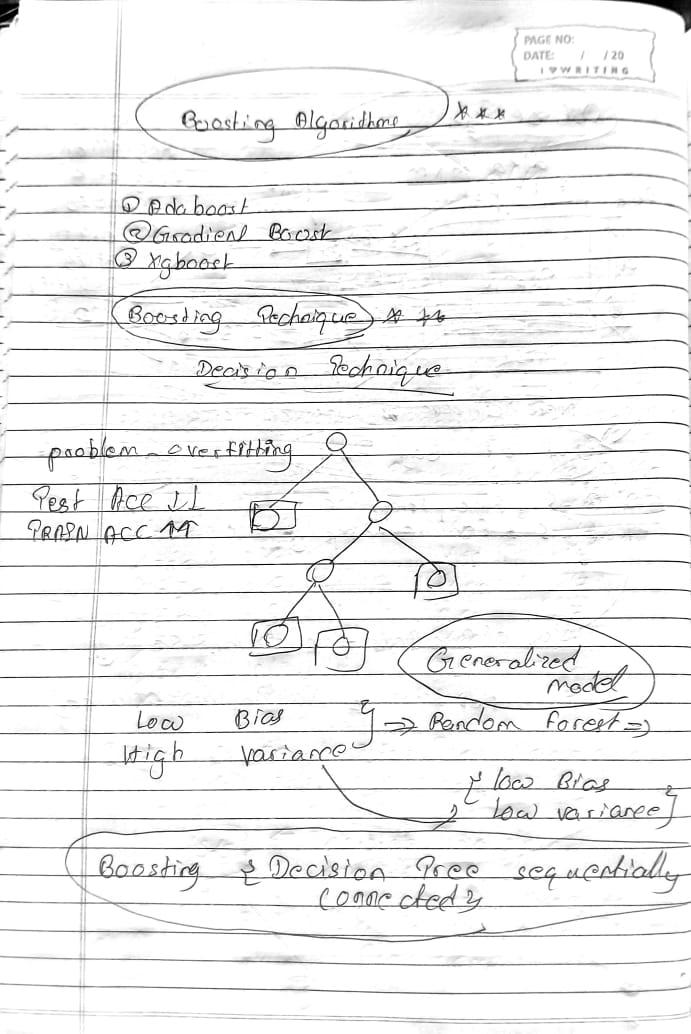 PAGE NO:
DATE: / /20
I ♥ WRITING
Boosting Algorithms ***
① Adaboost
② Gradient Boost
③ Xgboost
Boosting Technique ***
Decision Technique
problem - overfitting
Test Acc ↓↓
TRAIN ACC ↑↑
Generalized
model
Low Bias } ⇒ Random Forest ⇒
High variance
{ low Bias
low variance }
Boosting { Decision Tree sequentially
connected }